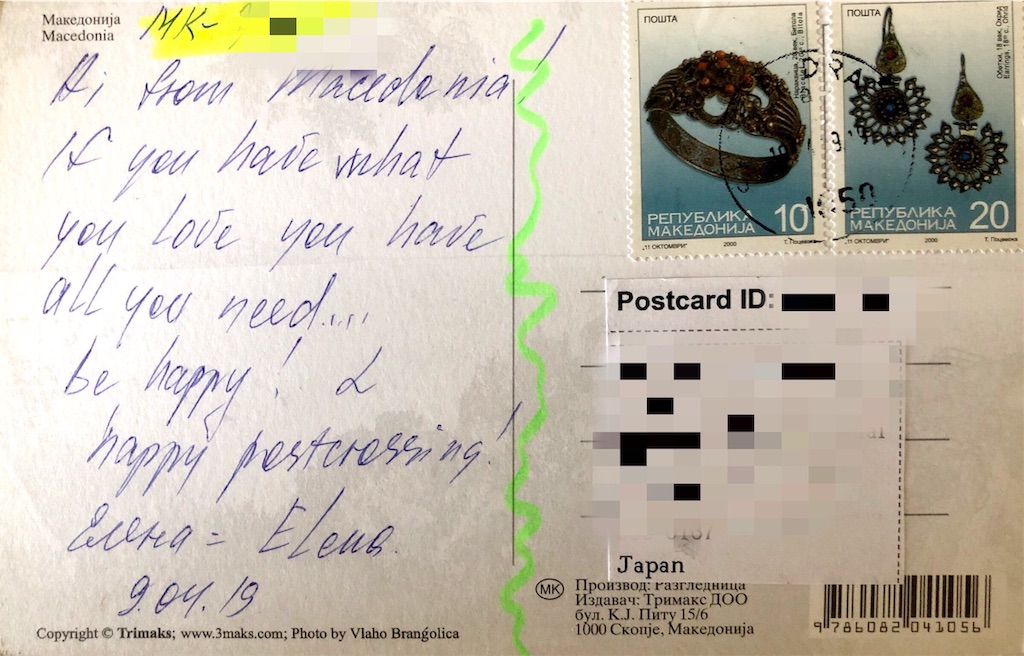 Македонија
Macedonia
MK-
Hi from Macedonia!
If you have what
you love you have
all you need....
be happy! &
happy postcrossing!
Елена = Elena
9.04.19
Copyright © Trimaks; www.3maks.com; Photo by Vlaho Branģolica
ПОШТА
РЕПУБЛИКА
МАКЕДОНИЈА
10
„11 ОКТОМВРИ“ 2000 Т. Поцевска
ПОШТА
Обетки, 18 век, Охрид
Earrings, 18th c., Ohrid
РЕПУБЛИКА
МАКЕДОНИЈА
20
„11 ОКТОМВРИ“ 2000 Т. Поцевска
Postcard ID:
Japan
MK
Производ: Разгледница
Издавач: Тримакс ДОО
бул. К.Ј. Питу 15/6
1000 Скопје, Македонија
9 786082 041056